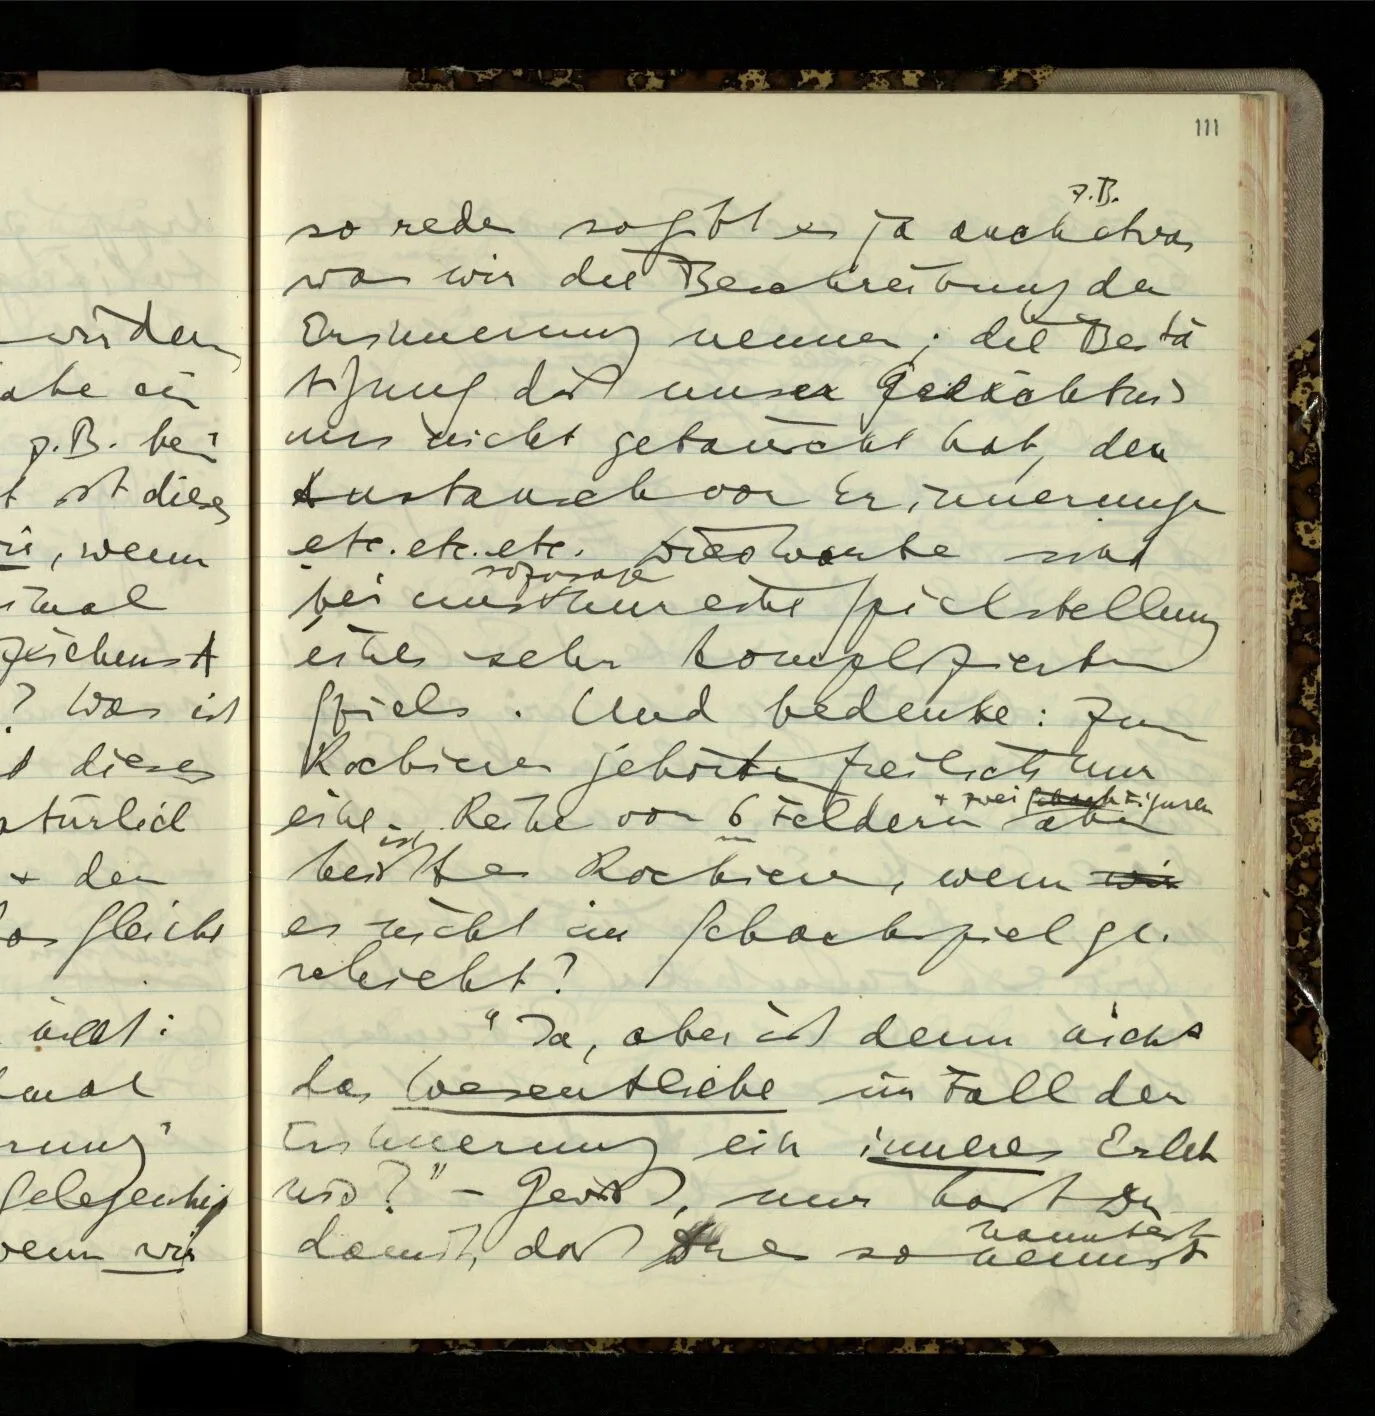 111
würden
habe ein
z.B. bei
ist dieses
, wenn
zeichen
? Was ist
dieses
natürlich
+ der
das gleiche
mal
rung"
Gelegenheit
wenn wir
z.B.
so reden so gibt es ja auch etwas
was wir die Beschreibung der
Erinnerung nennen; die Bestä
tigung daß unser Gedächtnis
uns nicht getäuscht hat, den
Austausch von Erinnerungen
etc. etc. etc. Die Worte sind
sozusagen
bei uns nur eine Spielstellung
eines sehr komplizierten
Spiels. Und bedenke: zum
Rochieren gehört freilich nur
+ zwei Schachfiguren
eine Reihe von 6 Feldern aber
ist
es Rochieren, wenn wir
es nicht im Schachspiel ge-
schieht?
"Ja, aber ist denn nicht
das Wesentliche im Fall der
Erinnerung ein inneres Erleb
nis?" – Gewiß, nur hast Du
nanntest
damit, daß Du es so nennst